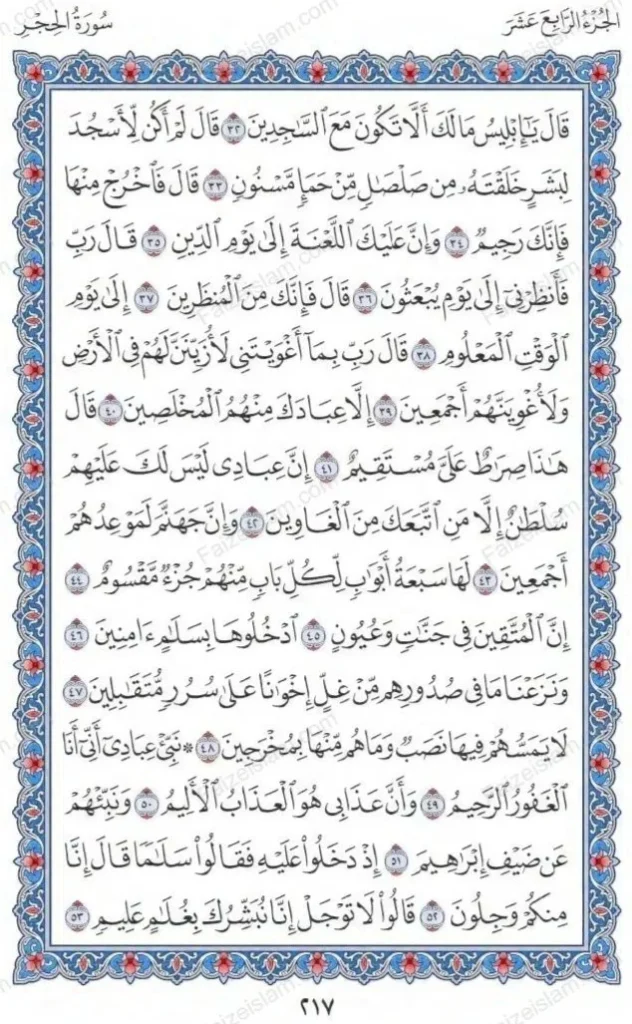 الجُزْءُ الرَّابِعَ عَشَرَ
سُورَةُ الحِجْرِ
قَالَ يَٰٓإِبْلِيسُ مَا لَكَ أَلَّا تَكُونَ مَعَ ٱلسَّٰجِدِينَ ٣٢ قَالَ لَمْ أَكُن لِّأَسْجُدَ
لِبَشَرٍ خَلَقْتَهُۥ مِن صَلْصَٰلٍ مِّنْ حَمَإٍ مَّسْنُونٍ ٣٣ قَالَ فَٱخْرُجْ مِنْهَا
فَإِنَّكَ رَجِيمٌ ٣٤ وَإِنَّ عَلَيْكَ ٱللَّعْنَةَ إِلَىٰ يَوْمِ ٱلدِّينِ ٣٥ قَالَ رَبِّ
فَأَنظِرْنِىٓ إِلَىٰ يَوْمِ يُبْعَثُونَ ٣٦ قَالَ فَإِنَّكَ مِنَ ٱلْمُنظَرِينَ ٣٧ إِلَىٰ يَوْمِ
ٱلْوَقْتِ ٱلْمَعْلُومِ ٣٨ قَالَ رَبِّ بِمَآ أَغْوَيْتَنِى لَأُزَيِّنَنَّ لَهُمْ فِى ٱلْأَرْضِ
وَلَأُغْوِيَنَّهُمْ أَجْمَعِينَ ٣٩ إِلَّا عِبَادَكَ مِنْهُمُ ٱلْمُخْلَصِينَ ٤٠ قَالَ
هَٰذَا صِرَٰطٌ عَلَىَّ مُسْتَقِيمٌ ٤١ إِنَّ عِبَادِى لَيْسَ لَكَ عَلَيْهِمْ
سُلْطَٰنٌ إِلَّا مَنِ ٱتَّبَعَكَ مِنَ ٱلْغَاوِينَ ٤٢ وَإِنَّ جَهَنَّمَ لَمَوْعِدُهُمْ
أَجْمَعِينَ ٤٣ لَهَا سَبْعَةُ أَبْوَٰبٍ لِّكُلِّ بَابٍ مِّنْهُمْ جُزْءٌ مَّقْسُومٌ ٤٤
إِنَّ ٱلْمُتَّقِينَ فِى جَنَّٰتٍ وَعُيُونٍ ٤٥ ٱدْخُلُوهَا بِسَلَٰمٍ ءَامِنِينَ ٤٦
وَنَزَعْنَا مَا فِى صُدُورِهِم مِّنْ غِلٍّ إِخْوَٰنًا عَلَىٰ سُرُرٍ مُّتَقَٰبِلِينَ ٤٧
لَا يَمَسُّهُمْ فِيهَا نَصَبٌ وَمَا هُم مِّنْهَا بِمُخْرَجِينَ ٤٨ ۞ نَبِّئْ عِبَادِىٓ أَنِّىٓ أَنَا
ٱلْغَفُورُ ٱلرَّحِيمُ ٤٩ وَأَنَّ عَذَابِى هُوَ ٱلْعَذَابُ ٱلْأَلِيمُ ٥٠ وَنَبِّئْهُمْ
عَن ضَيْفِ إِبْرَٰهِيمَ ٥١ إِذْ دَخَلُوا۟ عَلَيْهِ فَقَالُوا۟ سَلَٰمًا قَالَ إِنَّا
مِنكُمْ وَجِلُونَ ٥٢ قَالُوا۟ لَا تَوْجَلْ إِنَّا نُبَشِّرُكَ بِغُلَٰمٍ عَلِيمٍ ٥٣
٢١٧
Faizeislam.com